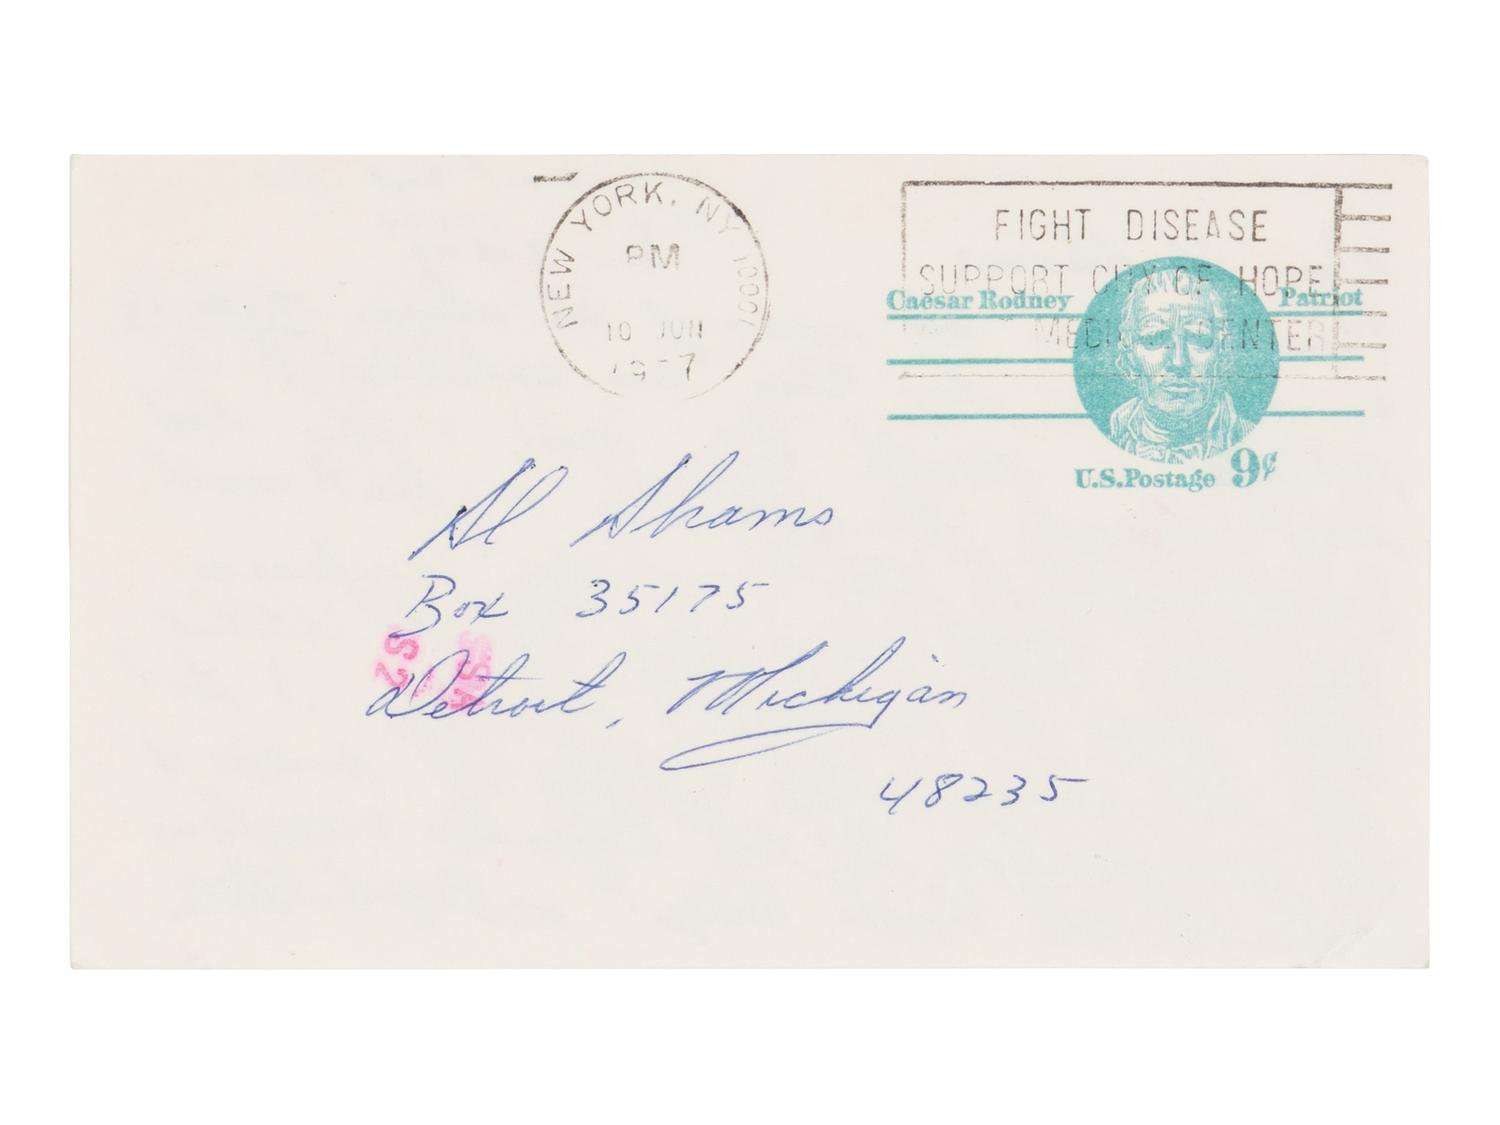 NEW YORK, NY 1000
PM
10 JUN
FIGHT DISEASE
SUPPORT CITY OF HOPE
MEDICAL CENTER
Caesar Rodney Patriot
U.S. Postage 9¢
Al Shams
Box 35175
Detroit, Michigan
48235